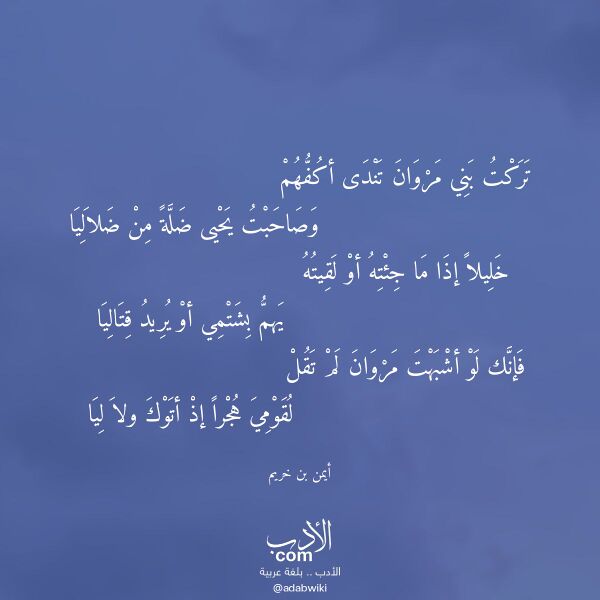 تَرَكْتُ بَنِي مَرْوَانَ تَنْدَى أكُفُّهُمْ
وَصَاحَبْتُ يَحْيى ضَلَّةً مِنْ ضَلاَلِيَا
خَلِيلاً إذَا مَا جِئْتِهُ أوْ لَقِيتُهُ
يَهمُّ بِشَتْمِي أوْ يُرِيدُ قِتَالِيَا
فَإنَّك لَوْ أشْبَهْتَ مَرْوَانَ لَمْ تَقُلْ
لُقَوْمِيَ هُجْراً إذْ أتَوْكَ ولاَ لِيَا
أيمن بن خريم
الأدب
com
الأدب .. بلغة عربية
@adabwiki